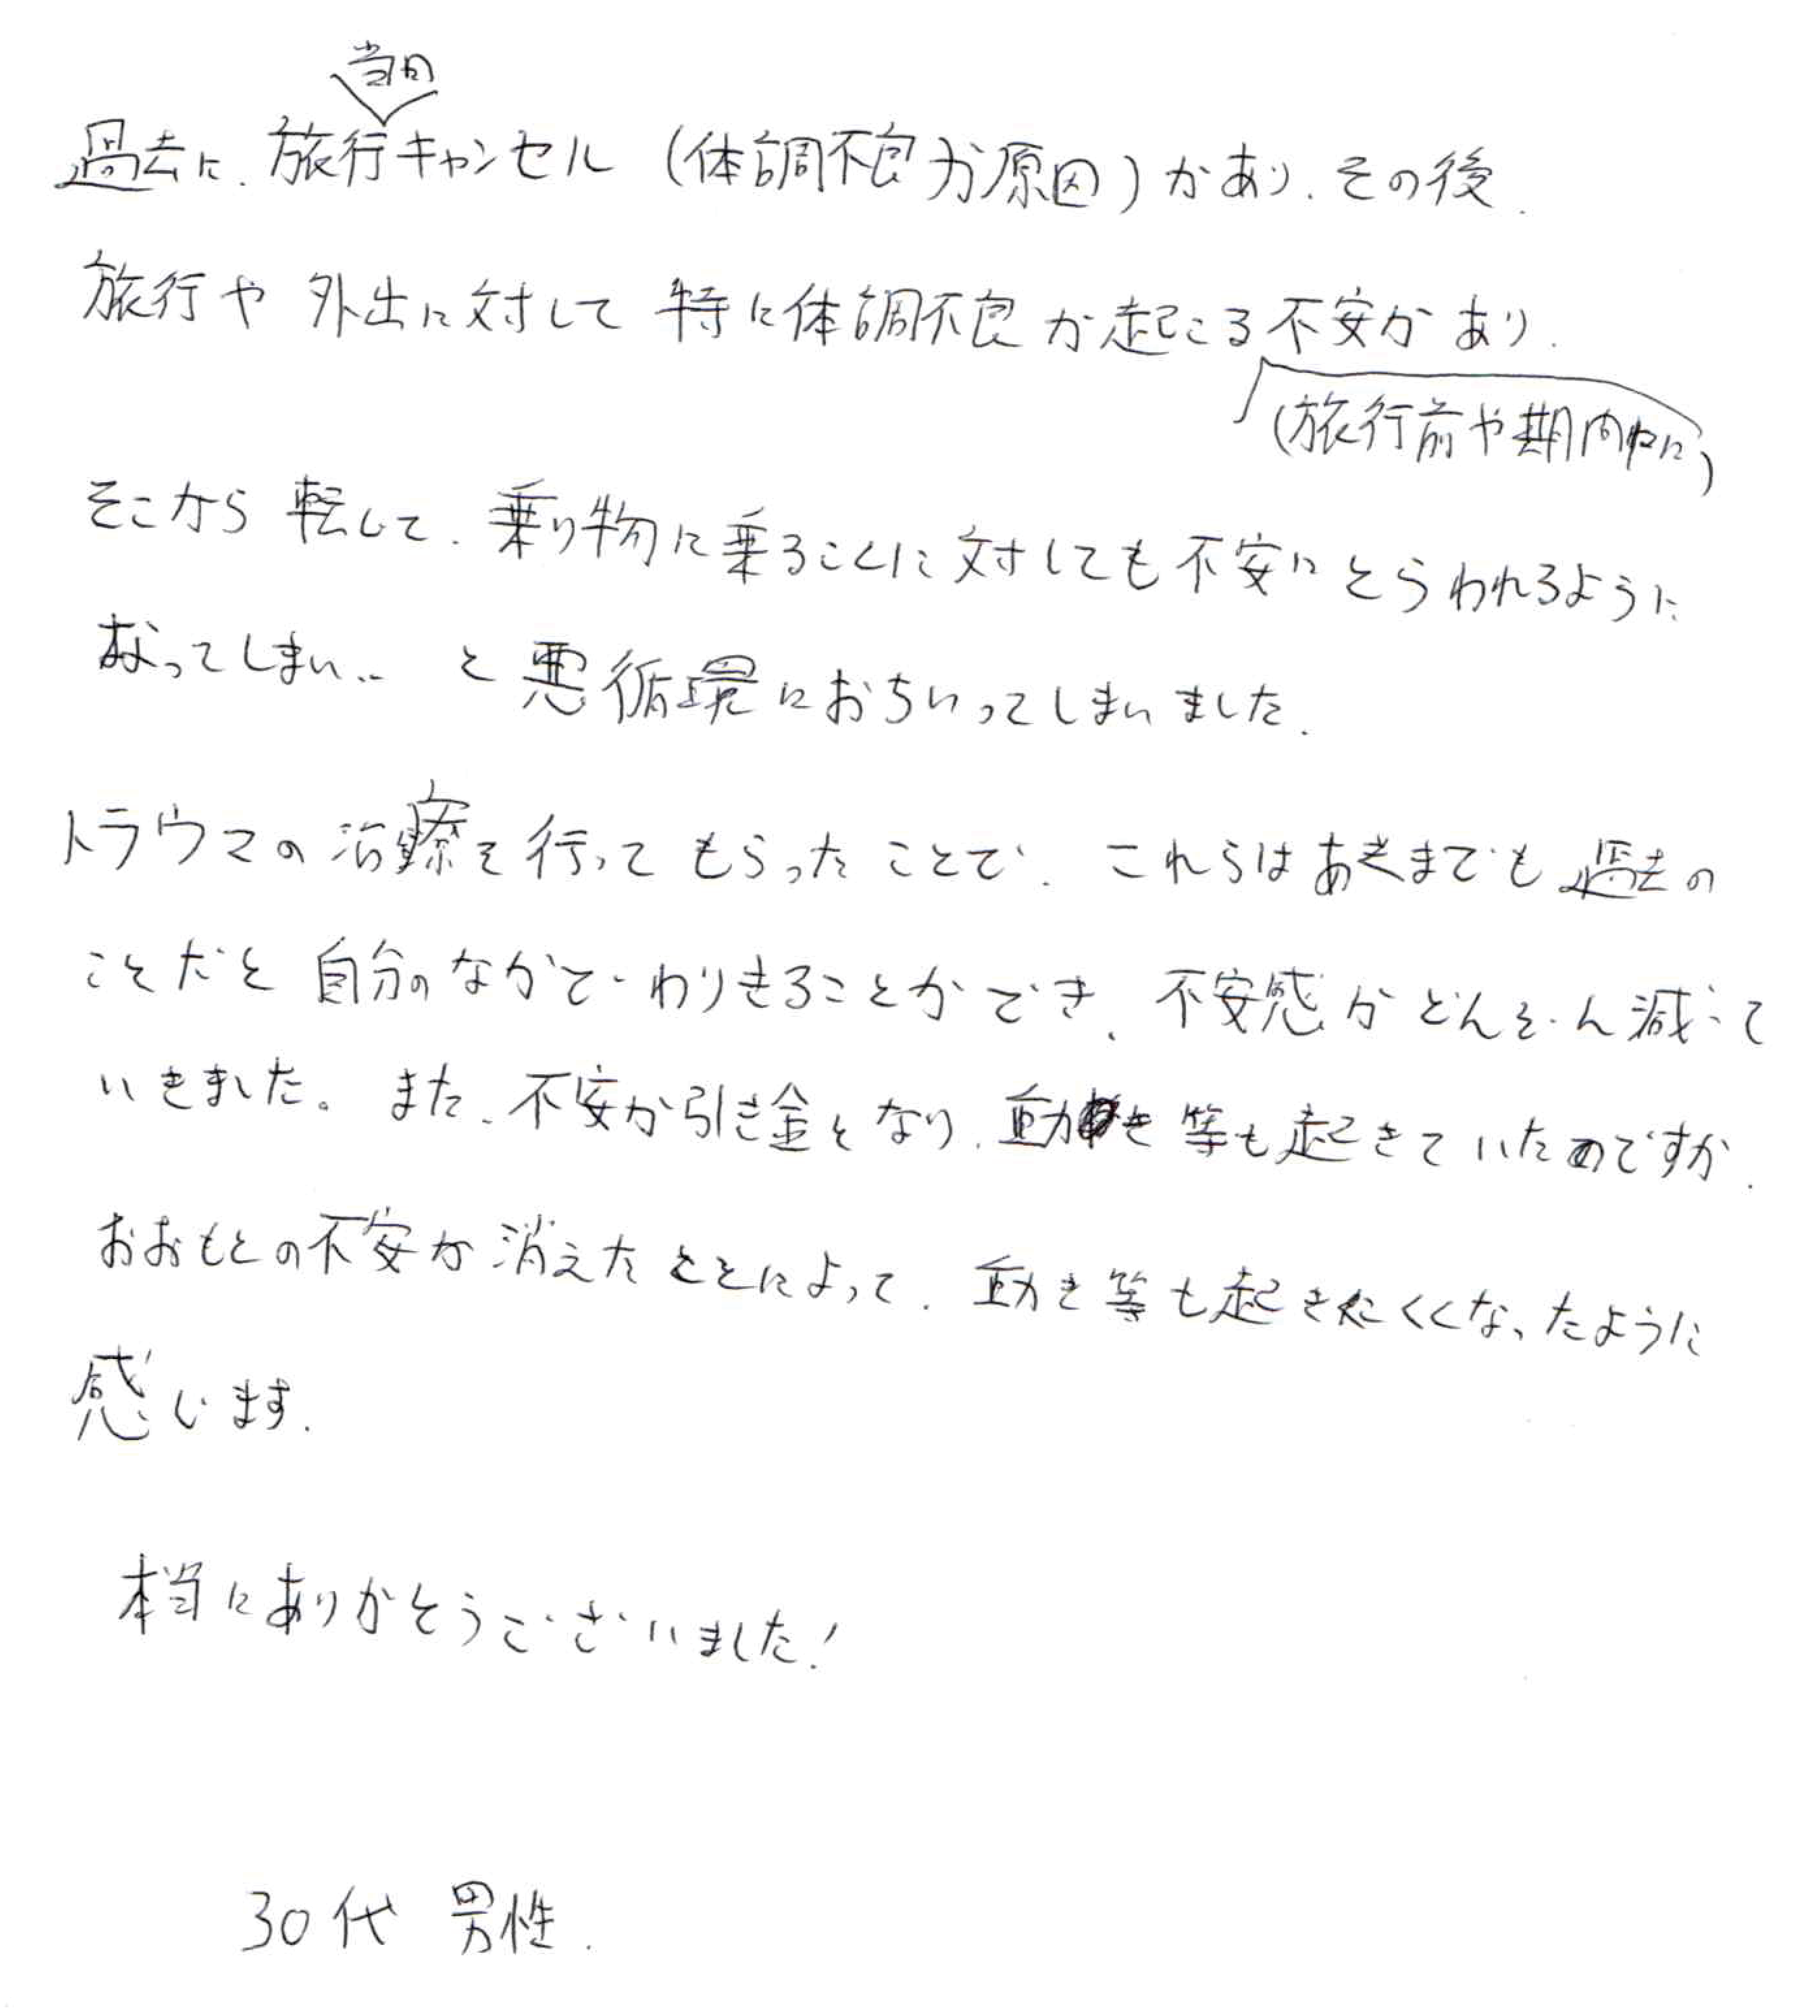 当日
過去に、旅行キャンセル（体調不良が原因）があり、その後、
旅行や外出に対して特に体調不良が起こる不安があり、
（旅行前や期間中に）
そこから転じて、乗り物に乗ることに対しても不安にとらわれるように
なってしまい… と悪循環におちいってしまいました。
トラウマの治療を行ってもらったことで、これらはあくまでも過去の
ことだと自分のなかでわりきることができ、不安感がどんどん減って
いきました。また、不安が引き金となり、動き等も起きていたのですが、
おおもとの不安が消えたことによって、動き等も起きにくくなったように
感じます。
本当にありがとうございました！
30代 男性.